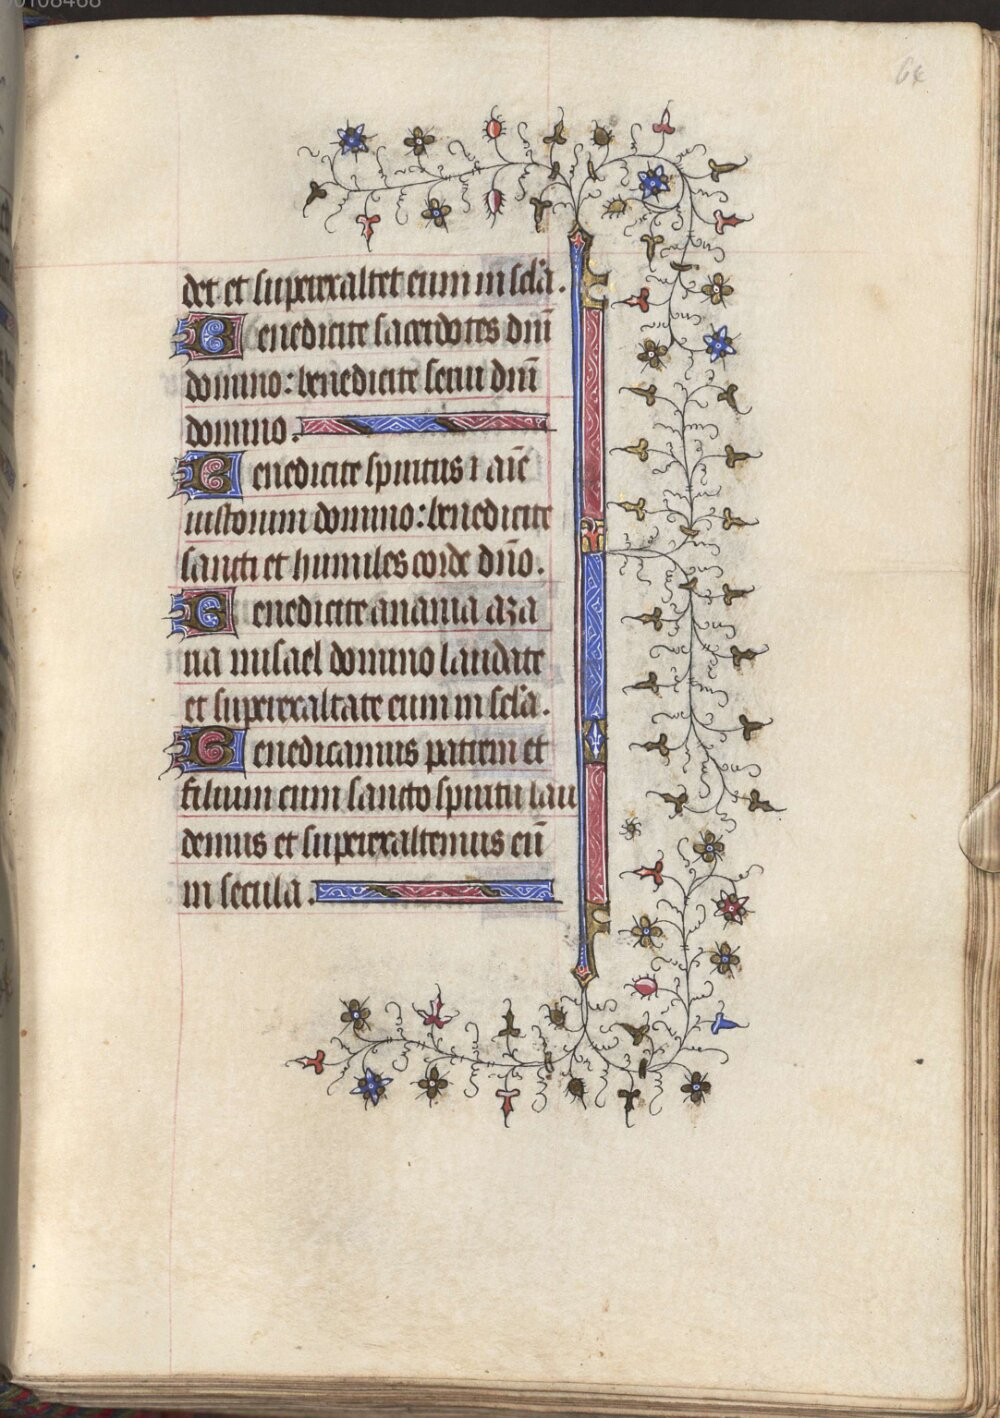 det et superexaltet eum in scl̃a.
Benedicite sacerdotes dñi
domino: benedicite serui dñi
domino.
Benedicite spiritus ⁊ aĩe
iustorum domino: benedicite
sancti et humiles corde dño.
Benedicite anania aza
ria misael domino laudate
et superexaltate eum in scl̃a.
Benedicamus patrem et
filium cum sancto spiritu lau
demus et superexaltemus eũ
in secula.